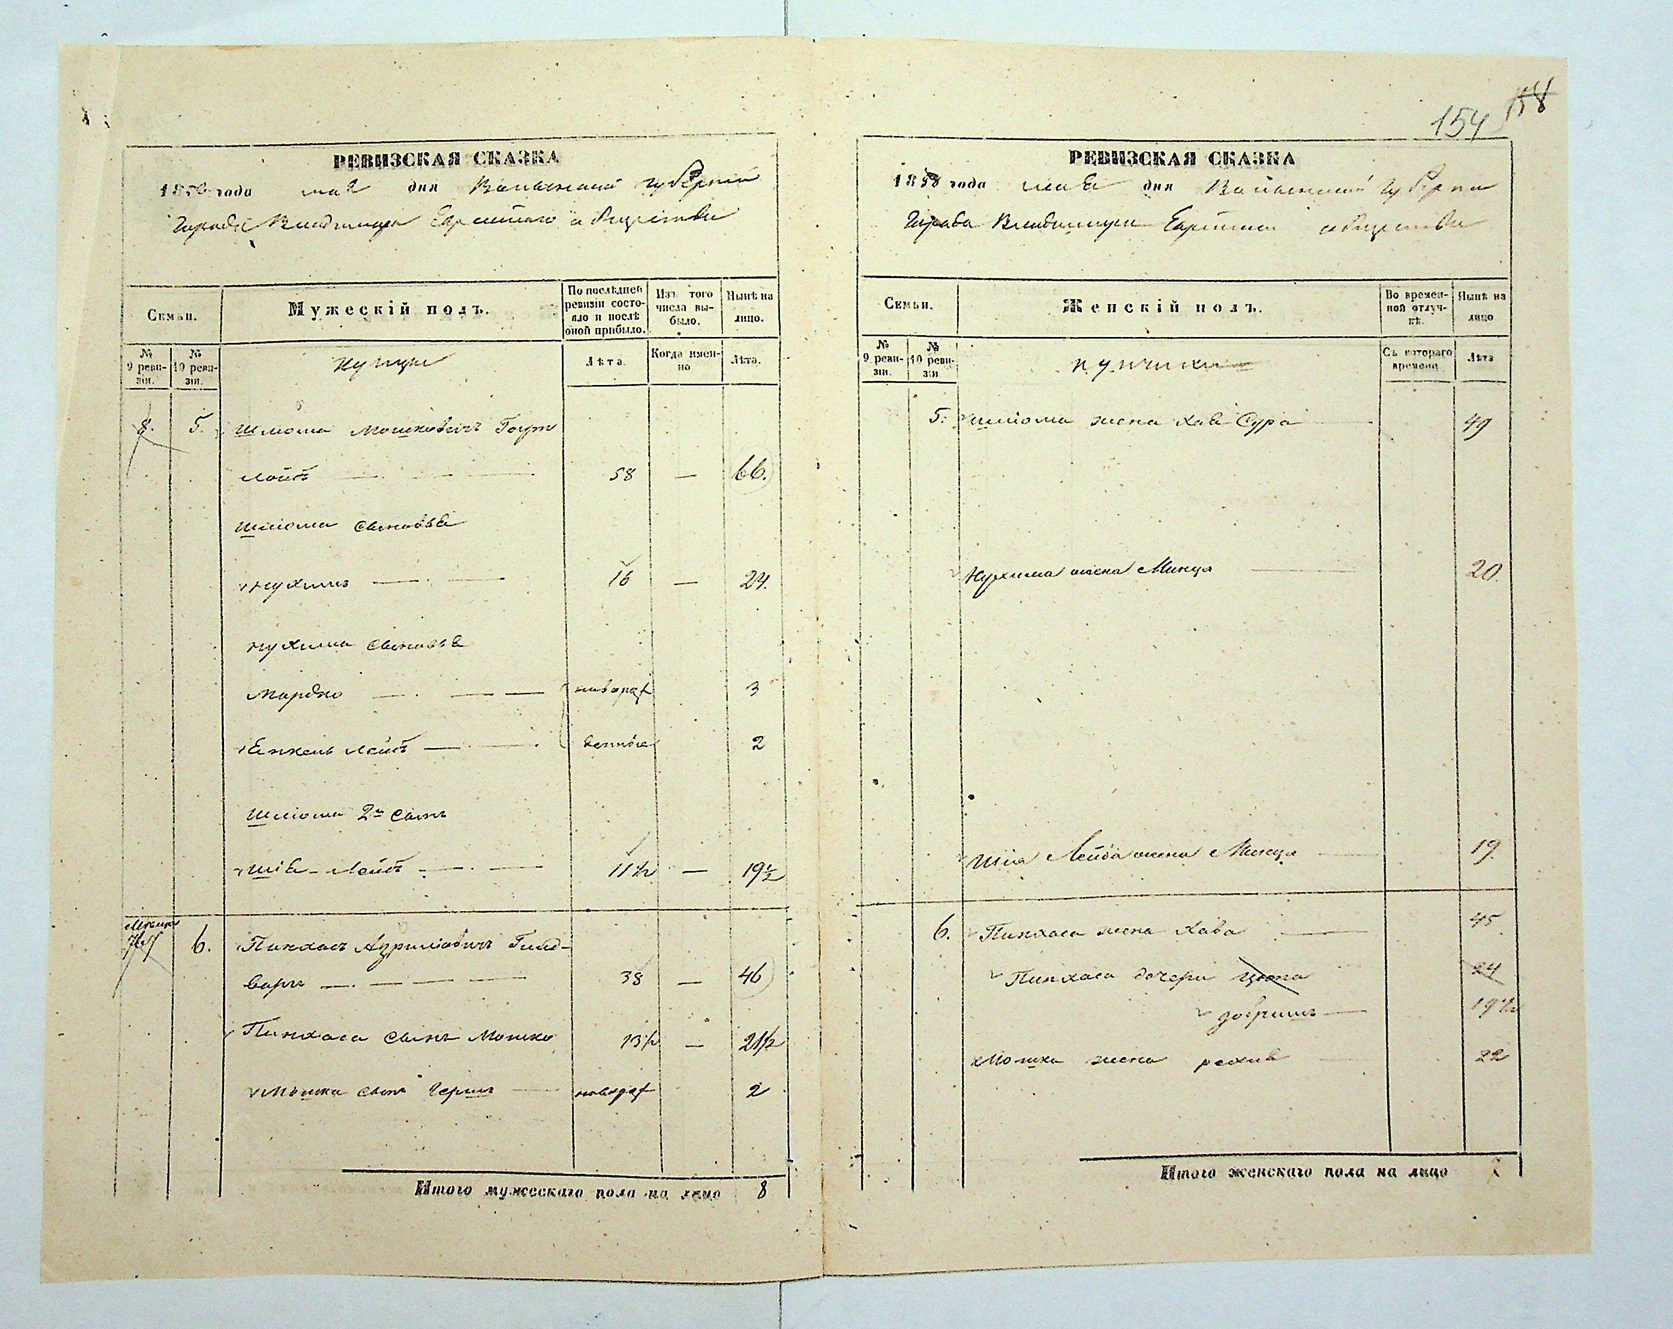 154
РЕВИЗСКАЯ СКАЗКА
1858 года мая дня Волынской губернии
Города Владимира Еврейского общества
Семьи.
Мужескій полъ.
По послѣдней ревизіи состояло и послѣ оной прибыло.
Изъ того числа выбыло.
Нынѣ на лицо.
№ 9 ревизіи.
№ 10 ревизіи.
купцы
Лѣта.
Когда именно
Лѣта.
8. 5. Шлiома Мошковичъ
58 — 66.
Шлiома сыновья
Нухимъ — 16 — 24.
Нухима сыновья
Мордко — новорож 3
Енкель Лейб — денные 2
Шлiома 2й сынъ
Шiя-Лейб — 11½ — 19½
6. Пинхасъ
38 — 46
Пинхаса сынъ Мошко 13½ — 21½
Мошка сынъ Гершъ новорож 2
Итого мужескаго пола на лицо 8
РЕВИЗСКАЯ СКАЗКА
1858 года мая дня Волынской губернии
Города Владимира Еврейского общества
Семьи.
Женскій полъ.
Во временной отлучкѣ.
Нынѣ на лицо
№ 9 ревизіи.
№ 10 ревизіи
купчихи
Съ котораго времени
Лѣта
5. Шлiома жена Хая Сура 49
Нухима жена Минця 20.
Шiя Лейба жена Минця 19.
6. Пинхаса жена Хава 45
Пинхаса дочери 24
19½
Мошка жена 22
Итого женскаго пола на лицо